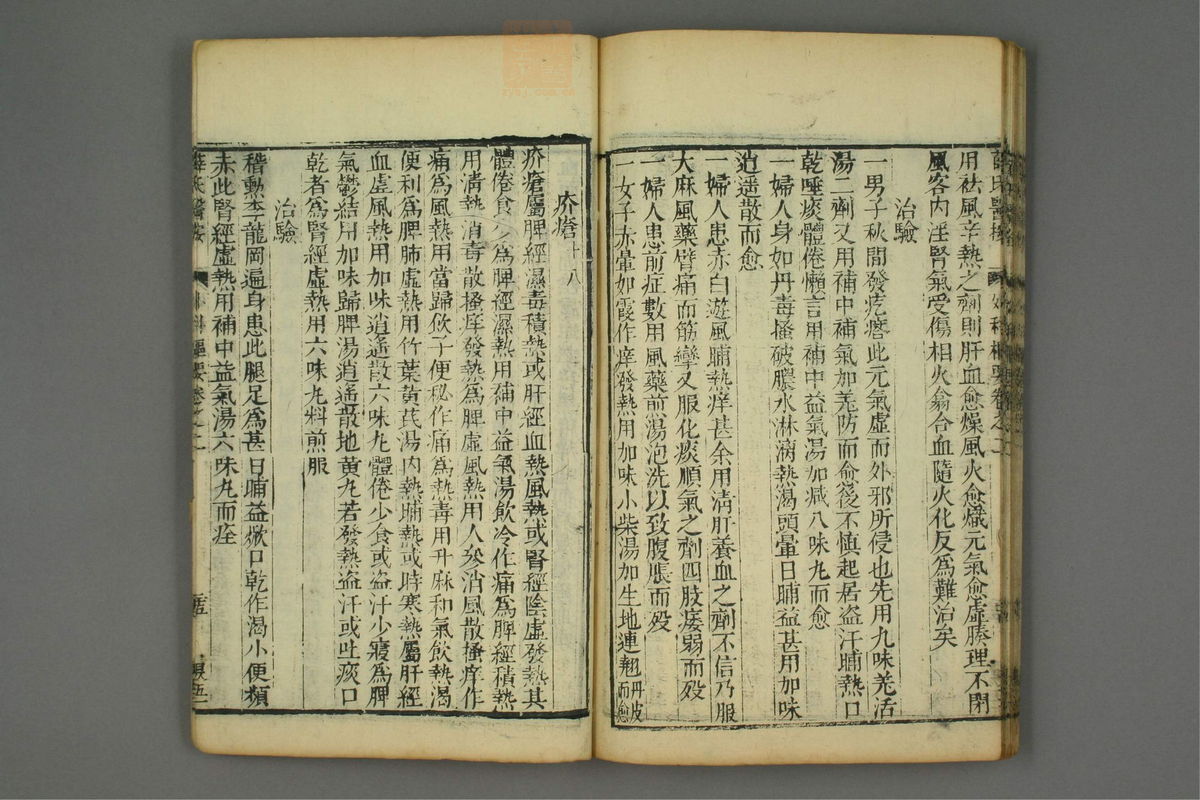 用袪風辛熱之劑則肝血愈燥風火愈熾元氣愈虛腠理不閉
風客內淫腎氣受傷相火翕合血隨火化反為難治矣
治驗
一男子秋間發疙瘩此元氣虛而外邪所侵也先用九味羌活
湯二劑又用補中補氣加羌防而愈後不慎起居盜汗晡熱口
乾唾痰體倦懶言用補中益氣湯加减八味丸而愈
一婦人身如丹毒搔破膿水淋漓熱渴頭暈日晡益甚用加味
逍遥散而愈
一婦人患赤白遊風晡熱痒甚余用清肝養血之劑不信乃服
大麻風藥臂痛而筋攣又服化痰順氣之劑四肢痿弱而殁
一婦人患前症數用風藥煎湯泡洗以致腹脹而殁
一女子赤暈如霞作痒發熱用加味小柴湯加生地連翹丹皮而愈
疥瘡十八
疥瘡屬脾經濕毒積熱或肝經血熱風熱或腎經陰虛發熱其
體倦食少為脾經濕熱用補中益氣湯飲冷作痛為脾經積熱
用清熱消毒散搔痒發熱為脾虛風熱用人參消風散搔痒作
痛為風熱用當歸飲子便秘作痛為熱毒用升麻和氣飲熱渴
便利為脾肺虛熱用竹葉黃芪湯內熱晡熱或時寒熱屬肝經
血虛風熱用加味逍遙散六味丸體倦少食或盜汗少寢為脾
氣鬱結用加味歸脾湯逍遙散地黃丸若發熱盜汗或吐痰口
乾者為腎經虛熱用六味丸料煎服
治驗
稽勳李龍岡遍身患此腿足為甚日晡益燉口乾作渴小便頻
赤此腎經虛熱用補中益氣湯六味丸而痊